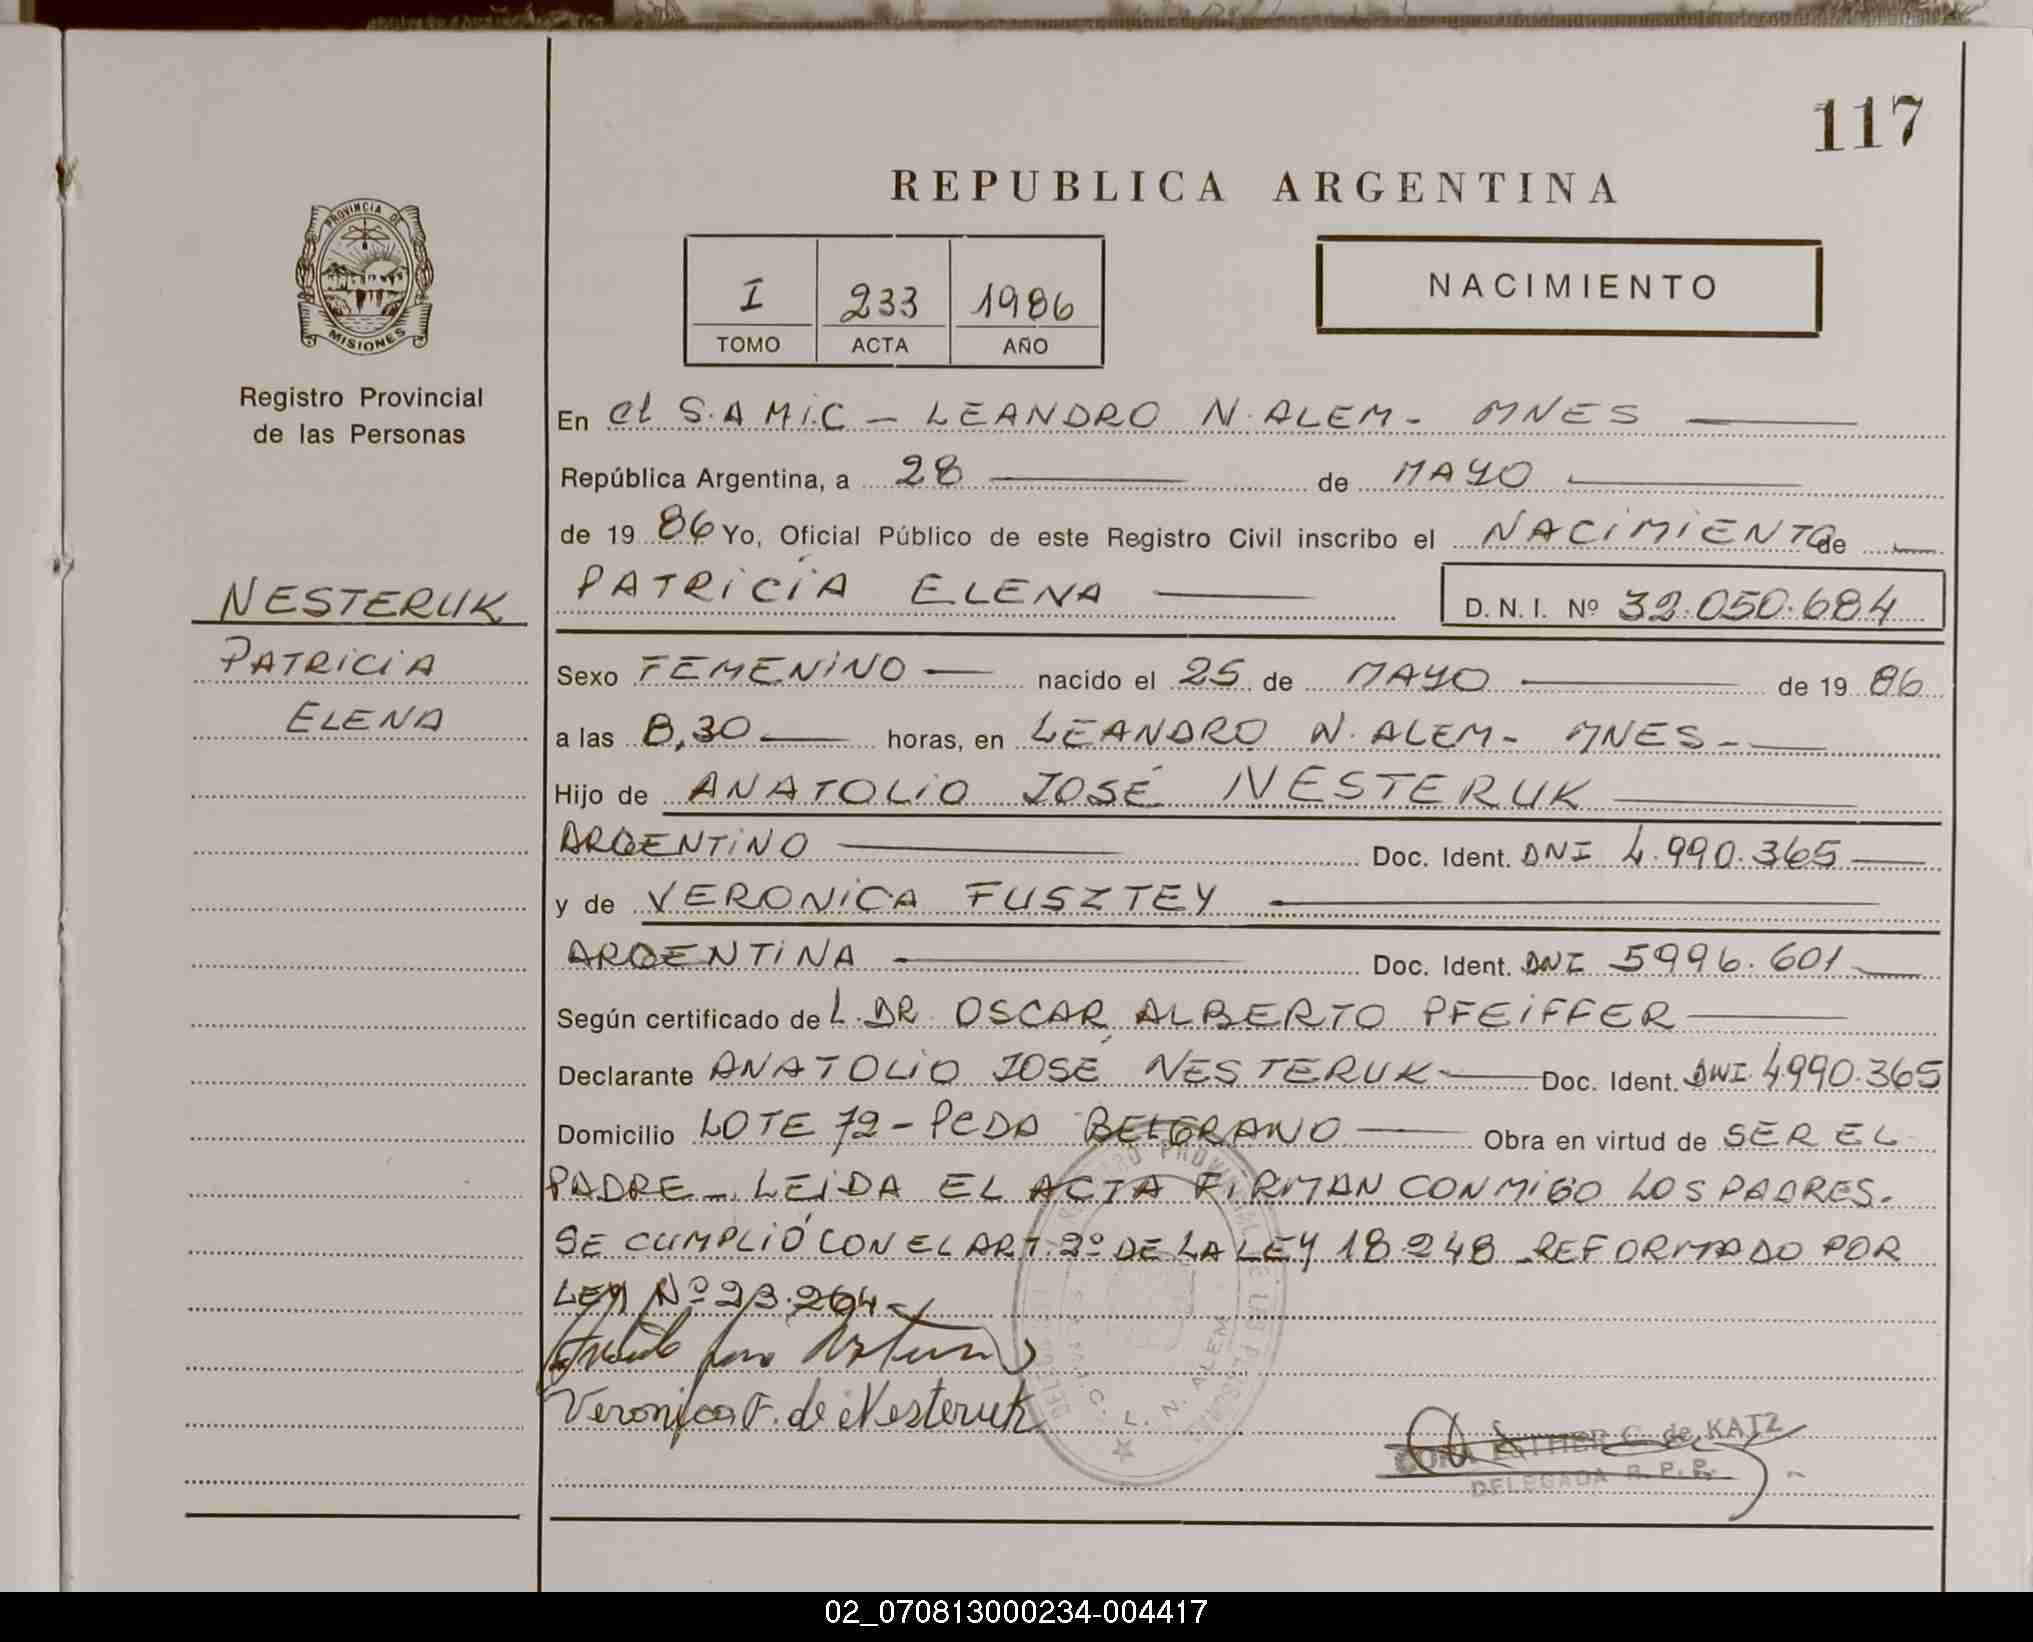 117
REPUBLICA ARGENTINA
PROVINCIA DE
MISIONES
Registro Provincial
de las Personas
I 233 1986
TOMO ACTA AÑO
NACIMIENTO
En el S.A.M.i.C - LEANDRO N. ALEM - MNES
República Argentina, a 28 de MAYO
de 19 86 Yo, Oficial Público de este Registro Civil inscribo el NACiMiENTO de
PATRiCíA ELENA D. N. I. Nº 32.050.684
NESTERUK
PATRiCiA
ELENA
Sexo FEMENiNO nacido el 25 de MAYO de 19 86
a las 8,30 horas, en LEANDRO N. ALEM - MNES -
Hijo de ANATOLiO JOSÉ NESTERUK
ARGENTiNO Doc. Ident. DNI 4.990.365
y de VERONiCA FUSZTEY
ARGENTiNA Doc. Ident. DNI 5996.601
Según certificado de L. DR. OSCAR ALBERTO PFEiFFER
Declarante ANATOLiO JOSÉ NESTERUK Doc. Ident. DNI 4990.365
Domicilio LOTE 72 - PCDA BELGRANO Obra en virtud de SER EL
PADRE - LEiDA EL ACTA FiRMAN CONMiGO LOS PADRES.
SE CUMPLIÓ CON EL ART. 2º DE LA LEY 18.248 REFORMADO POR
LEY Nº 23.264
Veronica F. de Nesteruk
L. N. ALEM
ESTHER C. de KATZ
DELEGADA R. P. P.
02_070813000234-004417